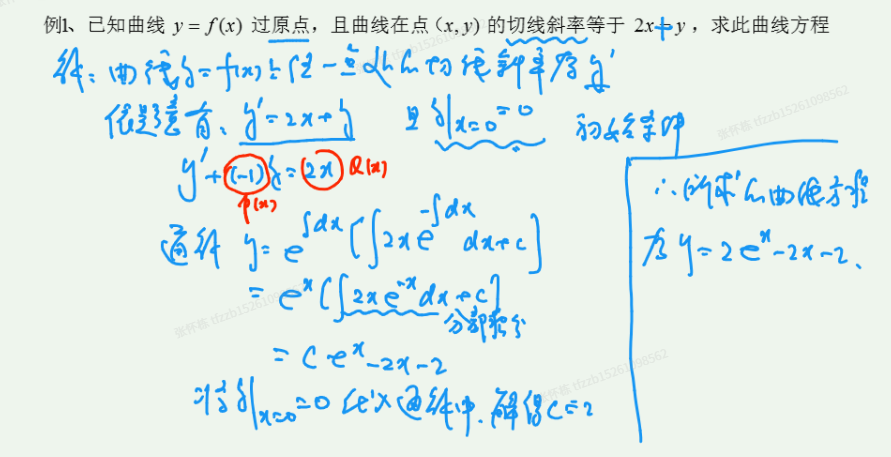 例1、已知曲线 y = f(x) 过原点，且曲线在点 (x, y) 的切线斜率等于 2x+y，求此曲线方程
解：曲线y=f(x)上任一点处的切线斜率为y'
依题意有、y'=2x+y 且 y|x=0=0 初始条件
y'+(-1)y=(2x) Q(x)
P(x)
通解 y=e^∫dx [∫2xe^-∫dx dx+c]
=e^x [∫2xe^-x dx+c]
分部积分
=Ce^x-2x-2
将y|x=0=0代入通解中、解得C=2
∴所求的曲线方程
为y=2e^x-2x-2、
张怀栋 tfzzb15261098562
张怀栋 tfzzb15261098562